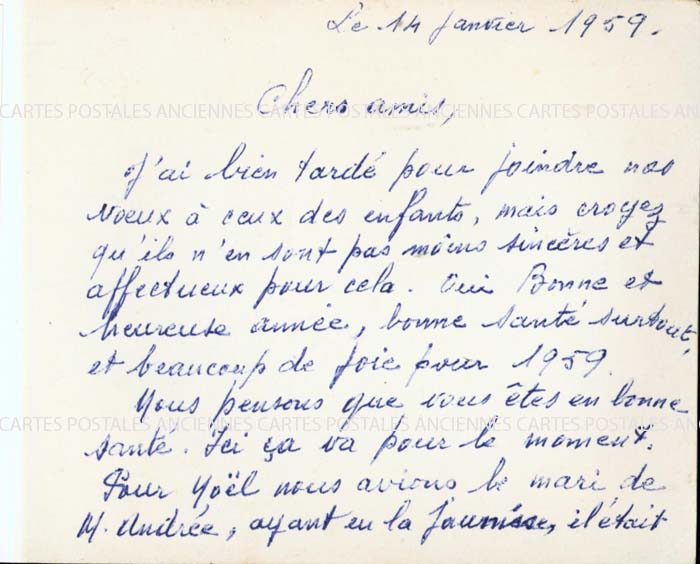 Le 14 Janvier 1959.
Chers amis,
CARTES POSTALES ANCIENNES CARTES POSTALES ANCIENNES CARTES POSTALES
J'ai bien tardé pour joindre nos
voeux à ceux des enfants, mais croyez
qu'ils n'en sont pas moins sincères et
affectueux pour cela. Oui Bonne et
heureuse année, bonne santé surtout,
et beaucoup de joie pour 1959.
Nous pensons que vous êtes en bonne
CARTES POSTALES ANCIENNES CARTES POSTALES ANCIENNES CARTES POSTALES
santé. Ici ça va pour le moment.
Pour Noël nous avions le mari de
M. Andrée, ayant eu la jaunisse, il était